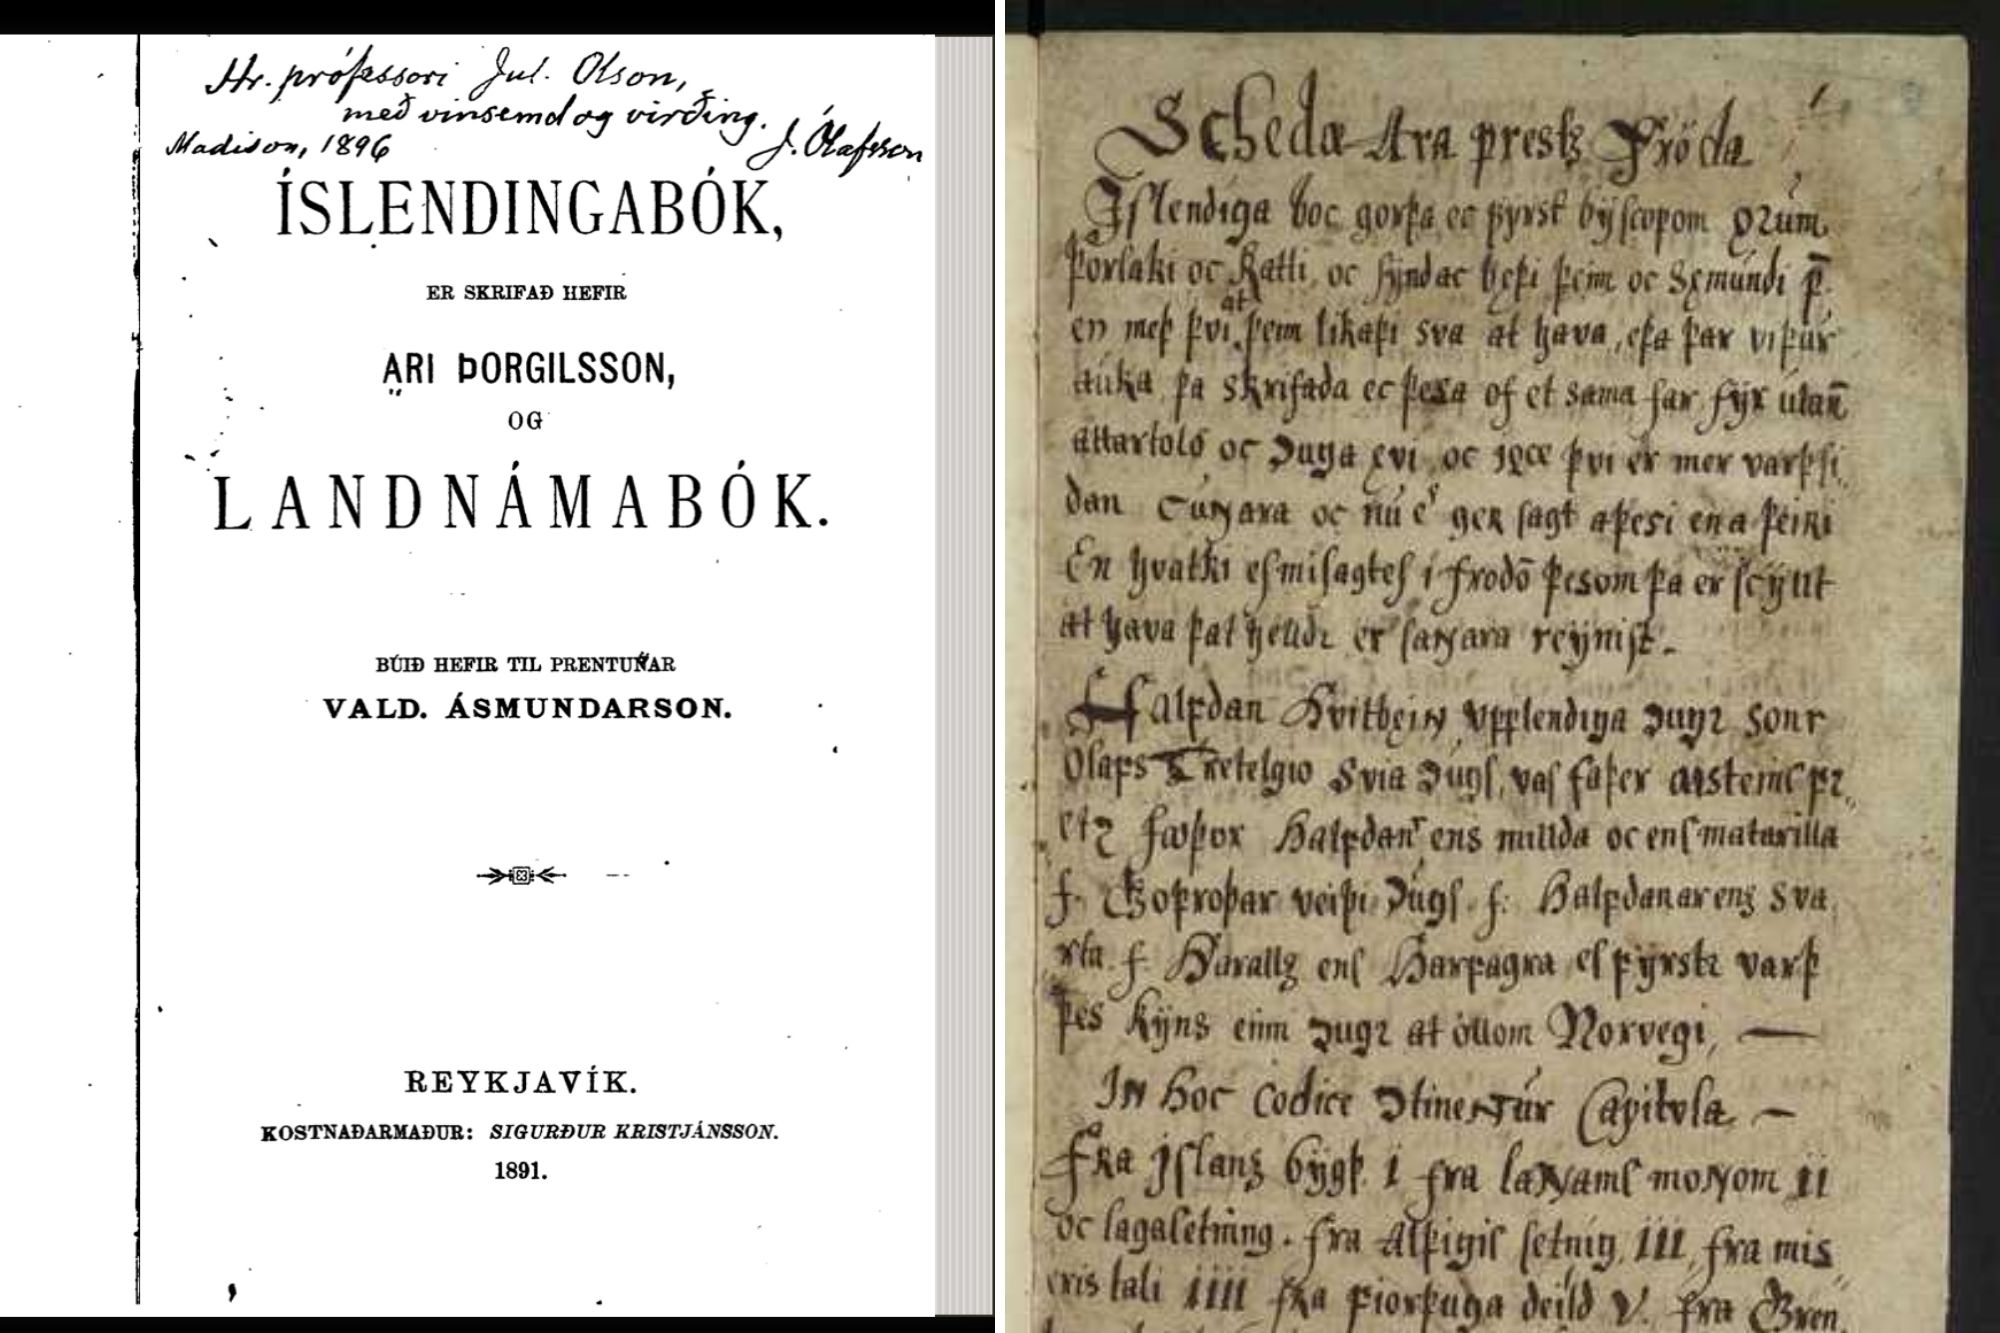 Hr. prófessori Jul. Olson,
með vinsemd og virðing.
Madison, 1896 J. Ólafsson
ÍSLENDINGABÓK,
ER SKRIFAÐ HEFIR
ARI ÞORGILSSON,
OG
LANDNÁMABÓK.
BÚIÐ HEFIR TIL PRENTUNAR
VALD. ÁSMUNDARSON.
REYKJAVÍK.
KOSTNAÐARMAÐUR: SIGURÐUR KRISTJÁNSSON.
1891.
Schedæ Ara prestz Fröda
Iſlendiga boc gorþa ec fyrst byſcopom orum
Þorlaki oc Katli, oc ſyndac beþi þeim oc Sęmundi p̄.
en meþ þvi at þeim likaþi sva at hava, eþa þar viþur
auka, þa skrifada ec þesa of et sama far, fyr utan
áttartolo oc
oc nu er ger sagt a þesi en a þeiri
En hvatki eſ miſagteſ i frodom þesom þa er ſcyllt
at hava þat helldr er ſannara reyniſt.
Halfdan Hvitbein Upplendiga sonr
Olafs Tretelgio Svia vaſ faþer
foþor Halfdanar ens millda oc enſ matarilla
f. Goþroþar veiþi f: Halfdanar ens Sva
rta. f. Haralldz enſ Harfagra eſ fyrstr varþ
þes kyns einn at öllom Norvegi, —
In hoc codice Capitvla —
Fra Iſlanz bygþ i fra lannamſ monnom ii
oc lagaſetning. fra Alþigiſ ſetnig iii, fra mis
eris tali iiii fra fiorþuga deild V. fra Gren